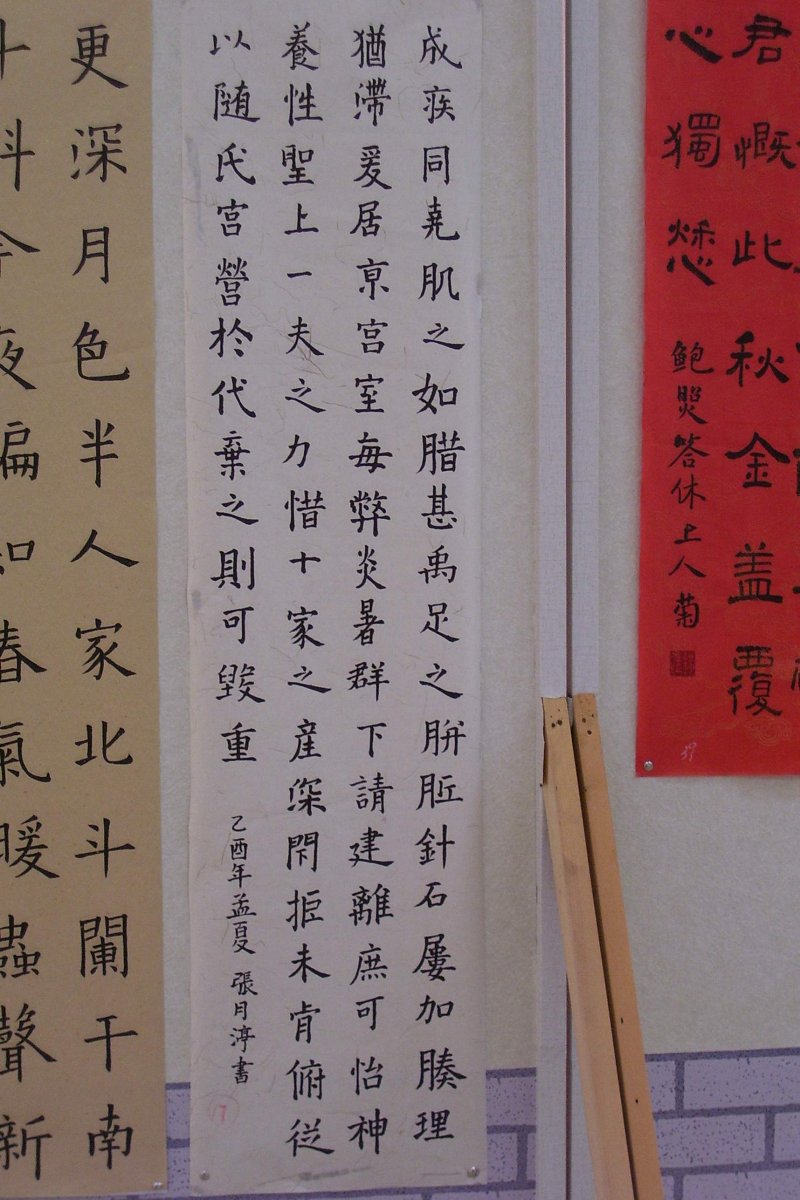 君慨此秋金盖覆
心獨愁
鮑照答休上人菊
成疾同堯肌之如腊甚禹足之胼胝針石屢加腠理
猶滯爰居京宮室每弊炎暑群下請建離庶可怡神
養性聖上一夫之力惜十家之產深閇拒未肯俯從
以随氏宮營於代棄之則可毀重
乙酉年孟夏 張月渟書
17
更深月色半人家北斗闌干南
斗斜今夜偏知春氣暖蟲聲新